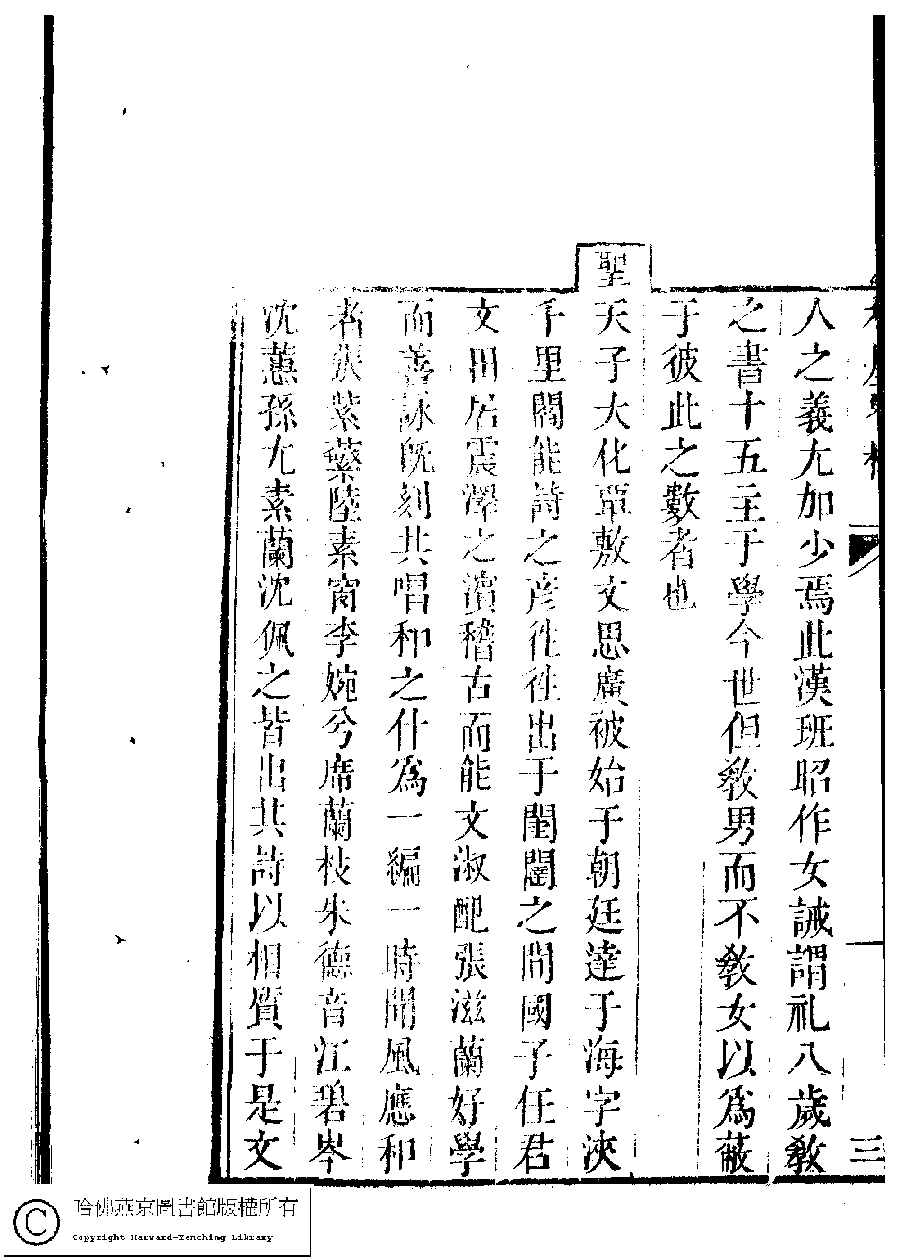 人之義尤加少焉此漢班昭作女誡謂礼八歲教
之書十五主于學今世但教男而不教女以為蔽
于彼此之數者也
聖天子大化覃敷文思廣被始于朝廷達于海宇浹
千里閣能詩之彥徃徃出于閨閫之間國子任君
文田居震澤之濱稽古而能文淑配張滋蘭好學
而善詠旣刻其唱和之什為一編一時聞風應和
者張紫蘩陸素窗李婉兮席蘭枝朱德音江碧岑
沈蕙孫尤素蘭沈佩之皆出其詩以相質于是文
三
哈佛燕京圖書館版權所有
Copyright Harvard-Yenching Library